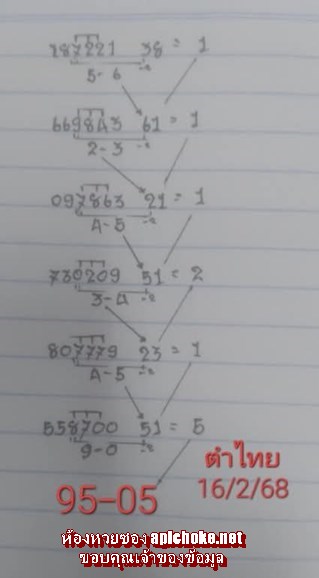 287221 38 = 1
5-6 -2
669843 61 = 1
2-3 -2
097863 21 = 1
4-5 -2
730209 51 = 2
3-4 -2
807779 23 = 1
4-5 -2
558700 51 = 5
9-0 -2
ตำไทย
95-05
16/2/68
ห้องหวยซอง apichoke.net
ขอบคุณเจ้าของข้อมูล